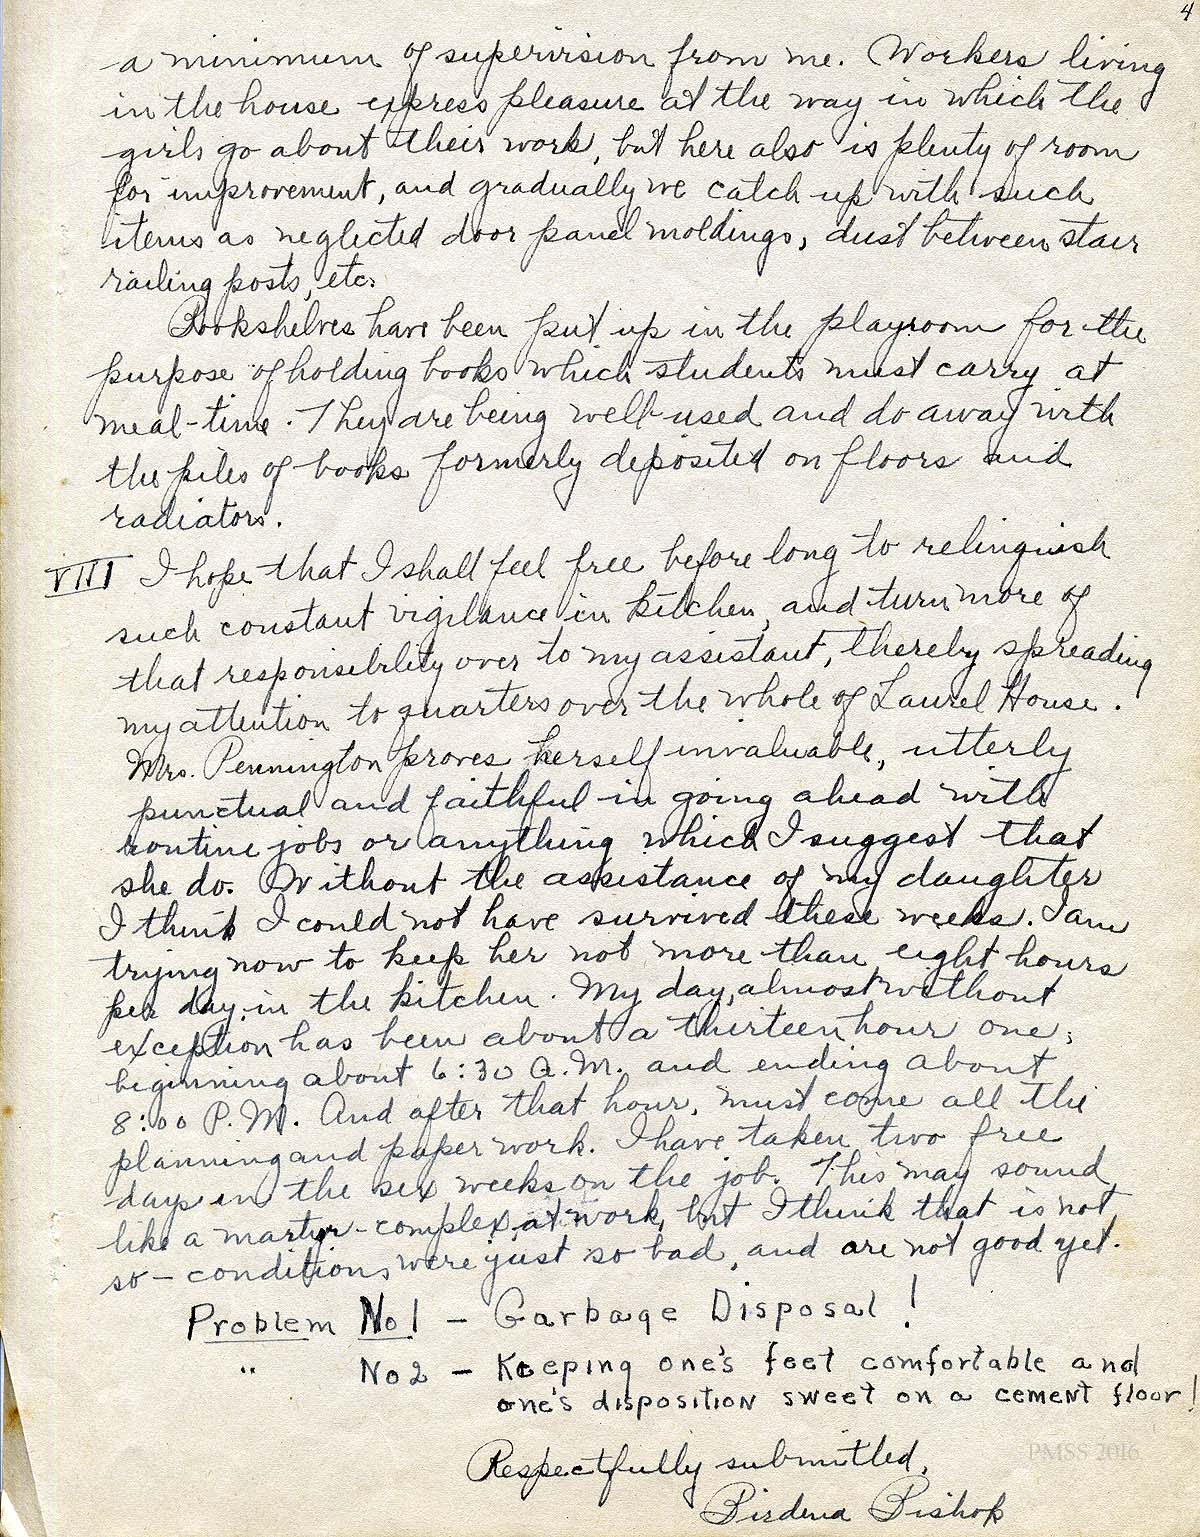 4
a minimum of supervision from me. Workers living
in the house express pleasure at the way in which the
girls go about their work, but here also is plenty of room
for improvement, and gradually we catch up with such
items as neglected door panel moldings, dust between stair
railing posts, etc.
Bookshelves have been put up in the playroom for the
purpose of holding books which students must carry at
meal-time. They are being well-used and do away with
the piles of books formerly deposited on floors and
radiators.
VIII I hope that I shall feel free before long to relinquish
such constant vigilance in kitchen, and turn more of
that responsibility over to my assistant, thereby spreading
my attention to quarters over the whole of Laurel House.
Mrs. Pennington proves herself invaluable, utterly
punctual and faithful in going ahead with
routine jobs or anything which I suggest that
she do. Without the assistance of my daughter
I think I could not have survived these weeks. I am
trying now to keep her not more than eight hours
per day in the kitchen. My day, almost without
exception has been about a thirteen hour one;
beginning about 6:30 A.M. and ending about
8:00 P.M. And after that hour, must come all the
planning and paper work. I have taken two free
days in the six weeks on the job. This may sound
like a martyr-complex at work, but I think that is not
so - conditions were just so bad, and are not good yet.
Problem No 1 - Garbage Disposal!
" No 2 - Keeping one's feet comfortable and
one's disposition sweet on a cement floor!
Respectfully submitted,
Birdena Bishop
PMSS 2016